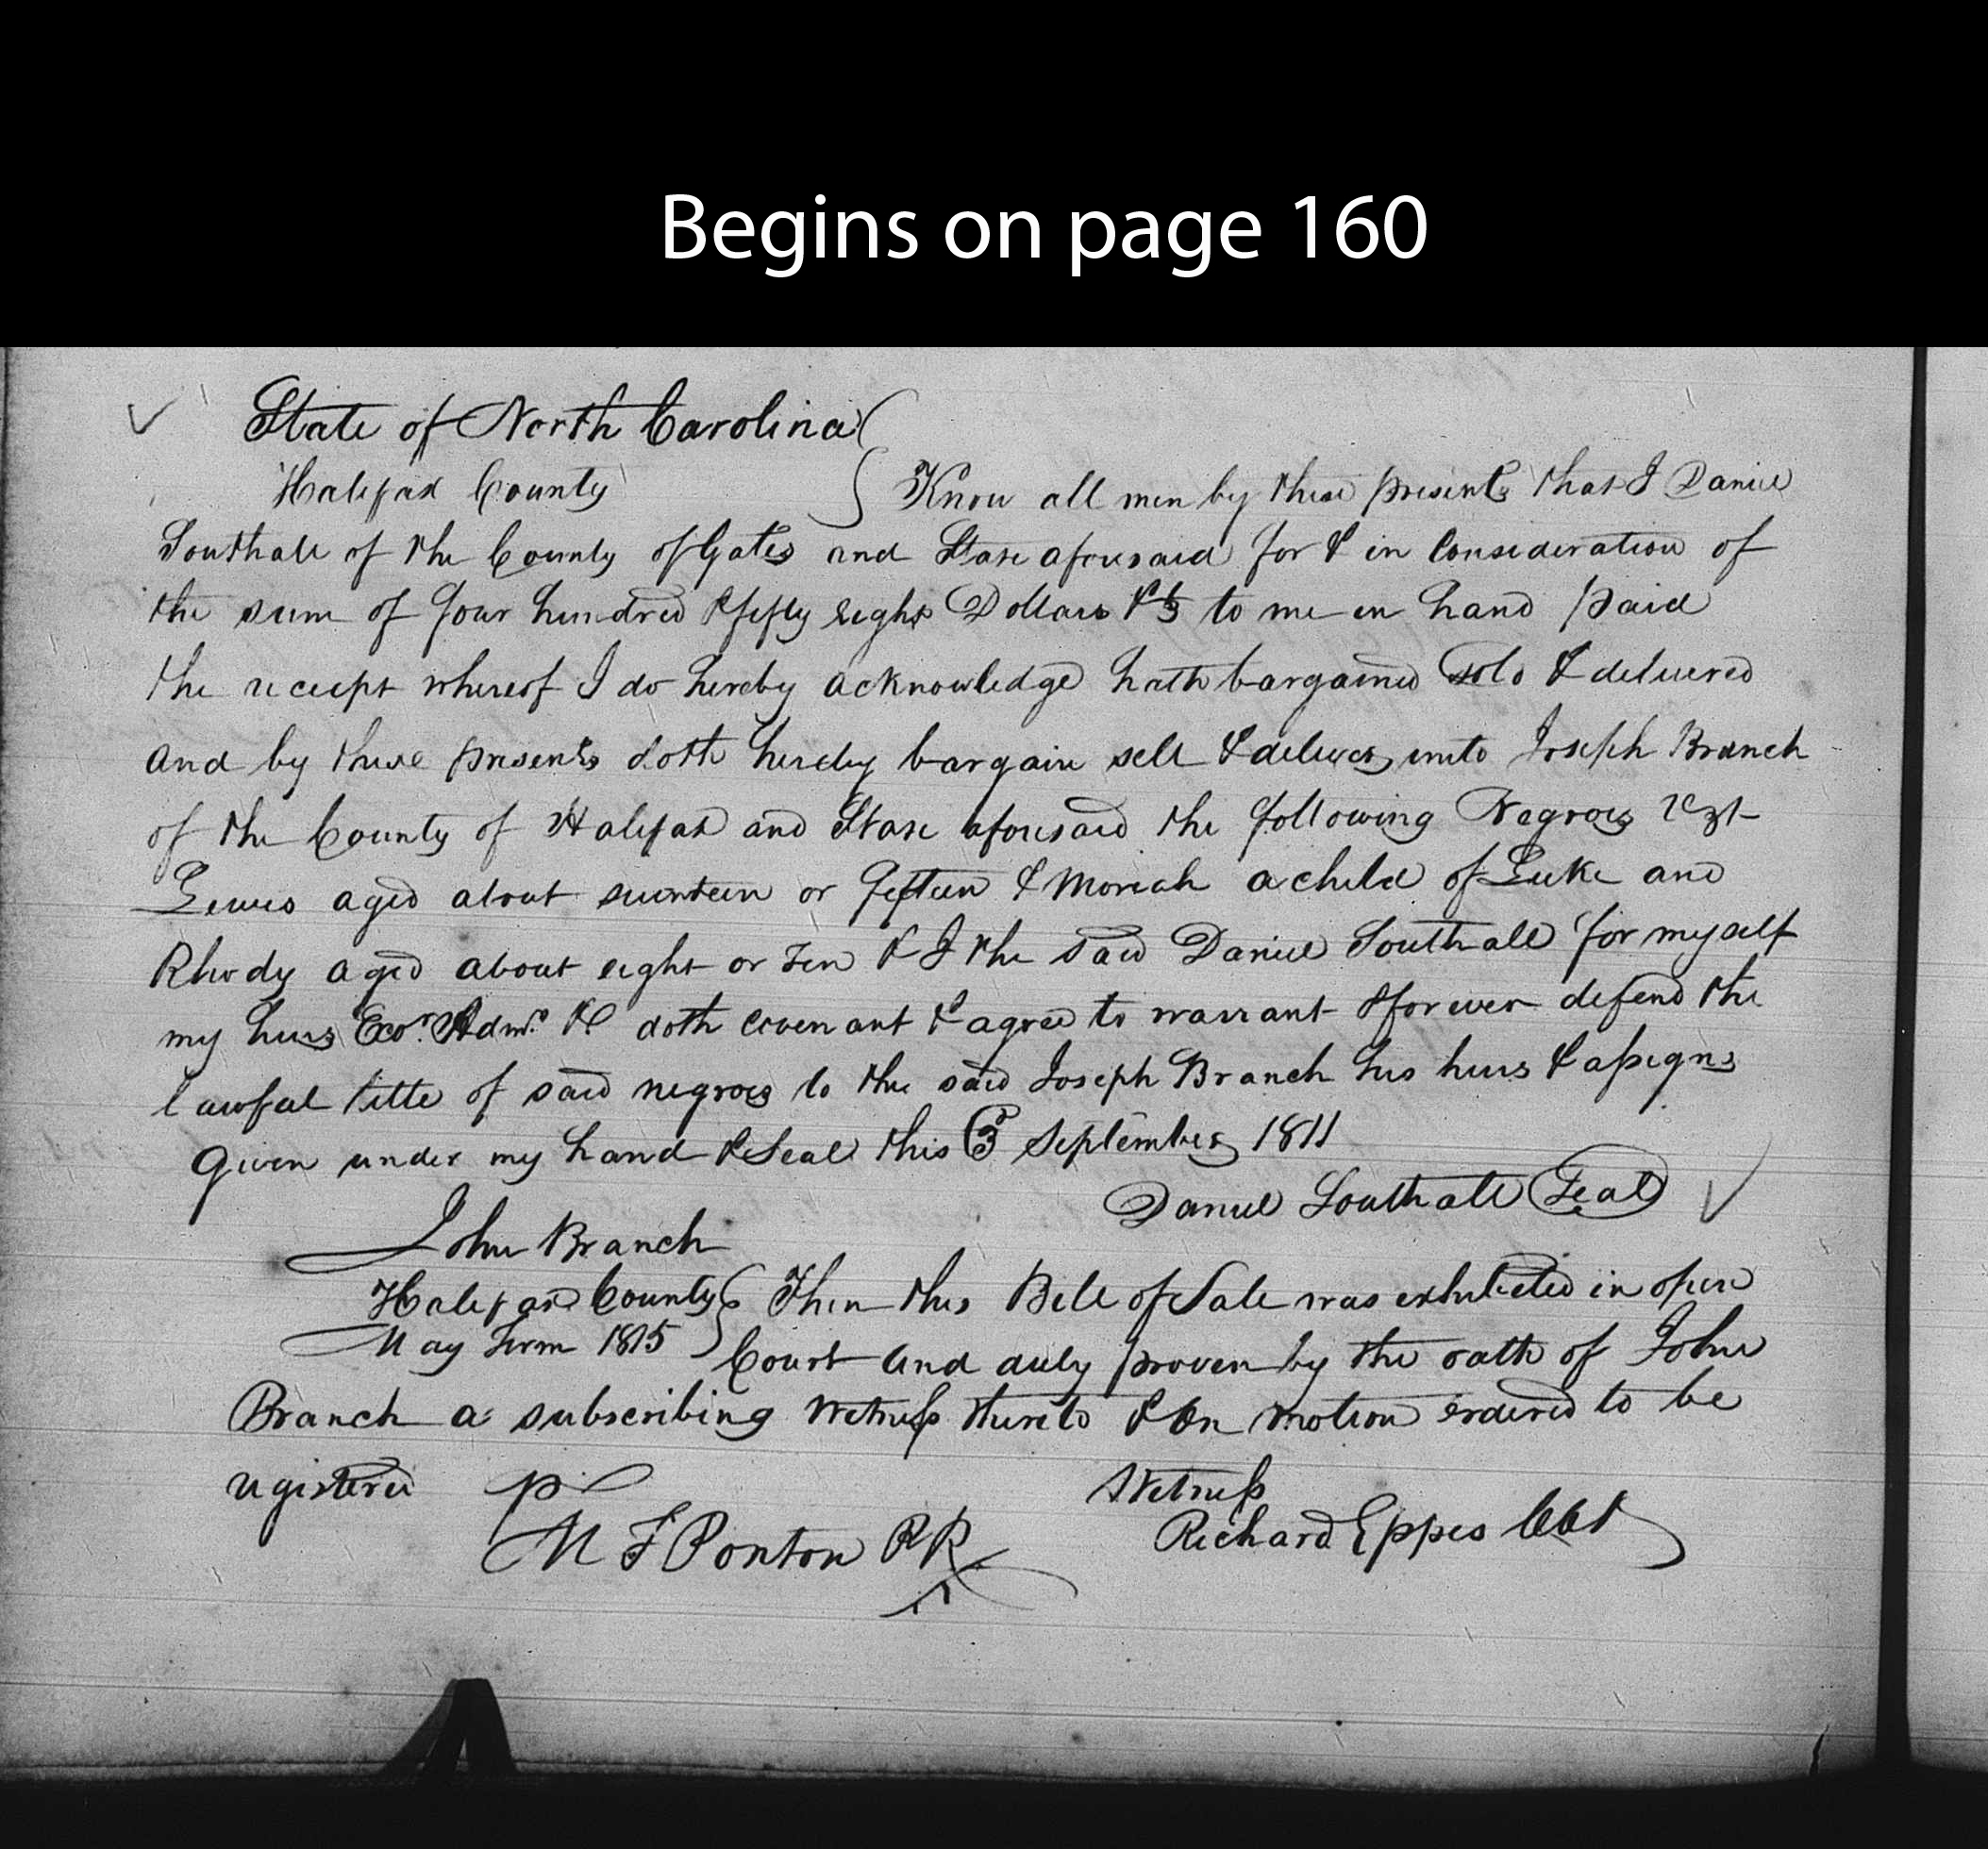 Begins on page 160
State of North Carolina
Halifax County Know all men by these presents that I Daniel
Southall of the County of Gates and State aforesaid for & in Consideration of
the sum of four hundred & fifty eight Dollars to me in hand paid
the receipt whereof I do hereby acknowledge hath bargained sold & delivered
and by these presents doth hereby bargain sell & deliver unto Joseph Branch
of the County of Halifax and State aforesaid the following Negroes
Lewis aged about or fifteen & Moriah a child of Luke and
Rhody aged about eight or ten & I the said Daniel Southall for myself
my heirs Exors. Admr. &C doth covenant & agree to warrant & forever defend the
lawful title of said negroes to the said Joseph Branch his heirs & assigns
Given under my hand & Seal this 3d September 1811
Daniel Southall Seal
John Branch
Halifax County Then this Bill of Sale was exhibited in open
May Term 1815 Court and duly proven by the oath of John
Branch a subscribing Witness thereto & On motion ordered to be
registered Witness
M F Ponton PR Richard Eppes